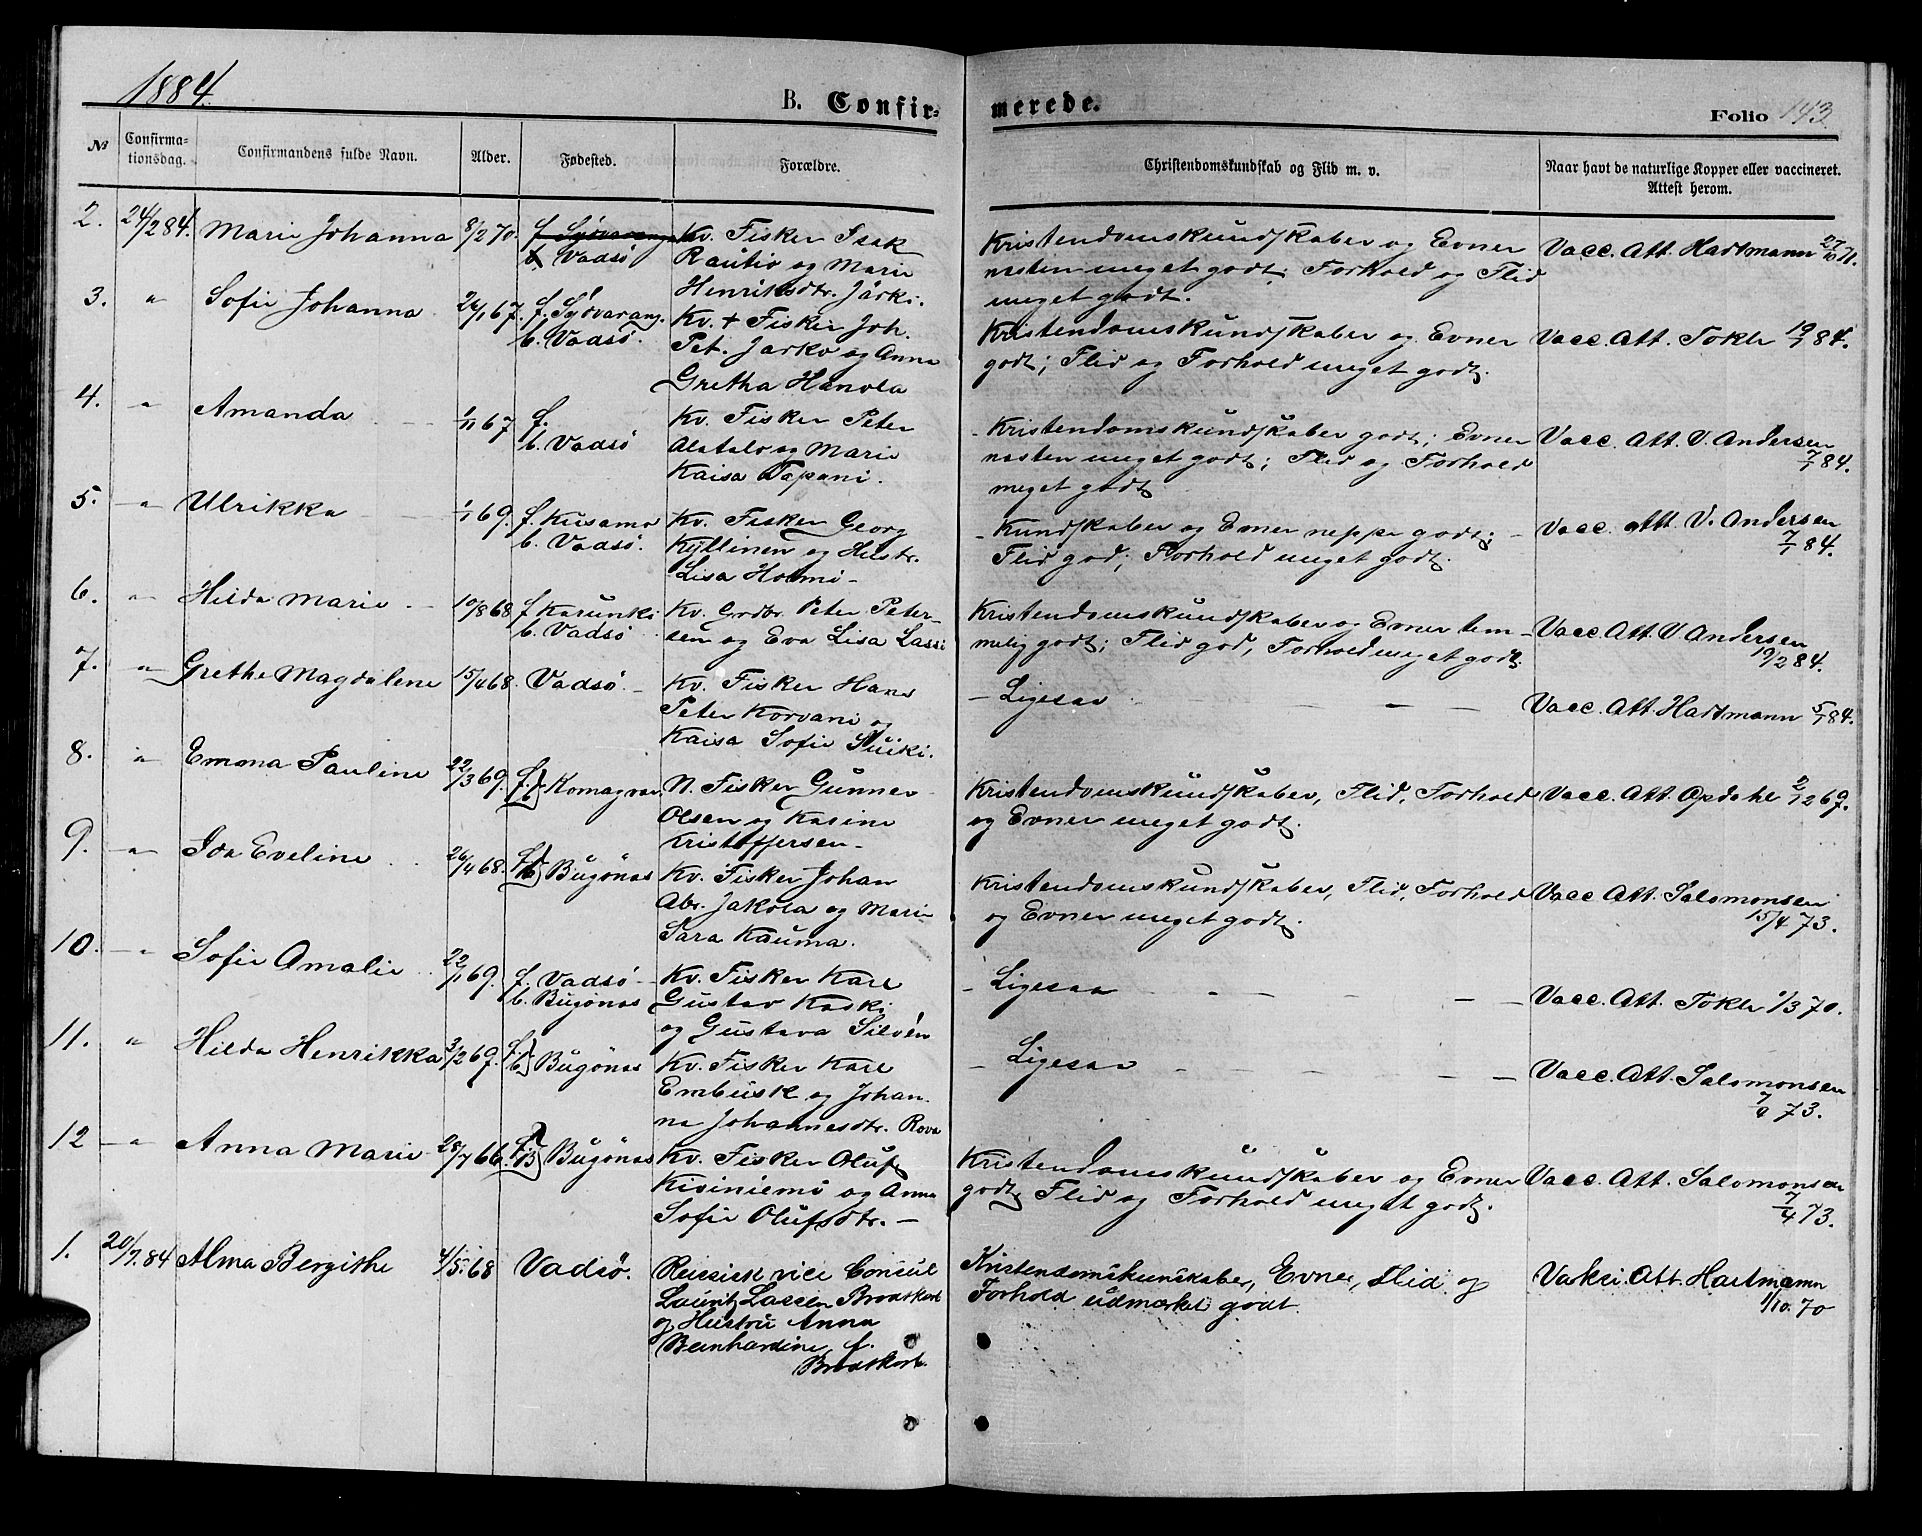 1884.
B. Confirmerede.
Folio 143
№
Confirmationsdag.
Confirmandens fulde Navn.
Alder.
Fødested.
Forældre.
Christendomskundskab og Flid m. v.
Naar havt de naturlige Kopper eller vaccineret. Attest herom.
2. 24/2 84. Marie Johanna 8/2 70. f. Sydvarang. Kv. Fisker Isak
b. Vadsö Rautio og Marie
Henriksdtr. Järki.
Kristendomskundskaber og Evner Vacc. Att. Hartmann 27/10 71.
næsten meget godt. Forhold og Flid
meget godt.
3. " Sofie Johanna 24/1 67. f. Sydvarang. Kv. + Fisker Joh.
b. Vadsö. Pet. Jarko og Anna
Gretha Hanola
Kristendomskundskaber og Evner Vacc. Att. Tokle 19/1 84.
godt; Flid og Forhold meget godt.
4. " Amanda 1/11 67 f. Kv. Fisker Peter
b. Vadsö Alatalo og Marie
Kaisa Tapani.
Kristendomskundskaber godt; Evner Vacc. Att. V. Andersen
næsten meget godt; Flid og Forhold 7/1 84.
meget godt
5. " Ulrikka 1/1 69. f. Kusamo Kv. Fisker Georg
b. Vadsö. Kyllinen og Hustr.
Lisa Holmi
Kundskaber og Evner neppe godt; Vacc. Att. V. Andersen
Flid god; Forhold meget godt. 7/1 84.
6. " Hilda Marie 10/8 68. f. Karunki Kv. Grdbr. Peter Peter-
b. Vadsö sen og Eva Lisa Lassi
Kristendomskundskaber og Evner tem- Vacc. Att. V Andersen
melig godt; Flid god, Forhold meget godt. 19/2 84.
7. " Grethe Magdalene 15/4 68. Vadsö. Kv. Fisker Hans
Peter Korvani og
Kaisa Sofie Suiki.
Ligesaa Vacc. Att. Hartmann 5/1 84.
8. " Emma Pauline 22/3 69. f. b. Komagvær N. Fisker Gunner
Olsen og Karine
Kristoffersen
Kristendomskundskaber, Flid, Forhold Vacc. Att. Opdahl 2/12 69.
og Evner meget godt.
9. " Ida Eveline 26/4 68. f. b. Bugönæs Kv. Fisker Johan
Abr. Jakola og Marie
Sara Kauma.
Kristendomskundskaber, Flid, Forhold Vacc. Att. Salomonsen
og Evner meget godt. 15/4 73.
10. " Sofie Amalie 22/1 69. f. Vadsö Kv. Fisker Karl
b. Bugönæs Gustav Kaski
og Gustava Silvén
Ligesaa Vacc. Att. Tokle 1/3 70.
11. " Hilda Henrikka 3/2 69. f. b. Bugönæs Kv. Fisker Karl
Embusk og Johan-
na Johannesdtr. Rova
Ligesaa Vacc. Att. Salomonsen
7/4 73.
12 " Anna Marie 28/7 66. f. B Bugönæs Kv. Fisker Oluf
Kisiniemi og Anna
Sofie Olufsdtr.
Kristendomskundskaber og Evner Vacc. Att. Salomonsen
godt, Flid og Forhold meget godt. 7/4 73.
1. 20/7. 84 Alma Bergithe 4/5. 68 Vadsö. Reissisk vice Consul
Lauritz Lassen Brodtkorb
og Hustru Anna
Bernhardine f.
Brodtkorb
Kristendomskunskaber, Evner, Flid og Vakci. Att. Hartmann
Forhold udmærket godt. 1/10. 70